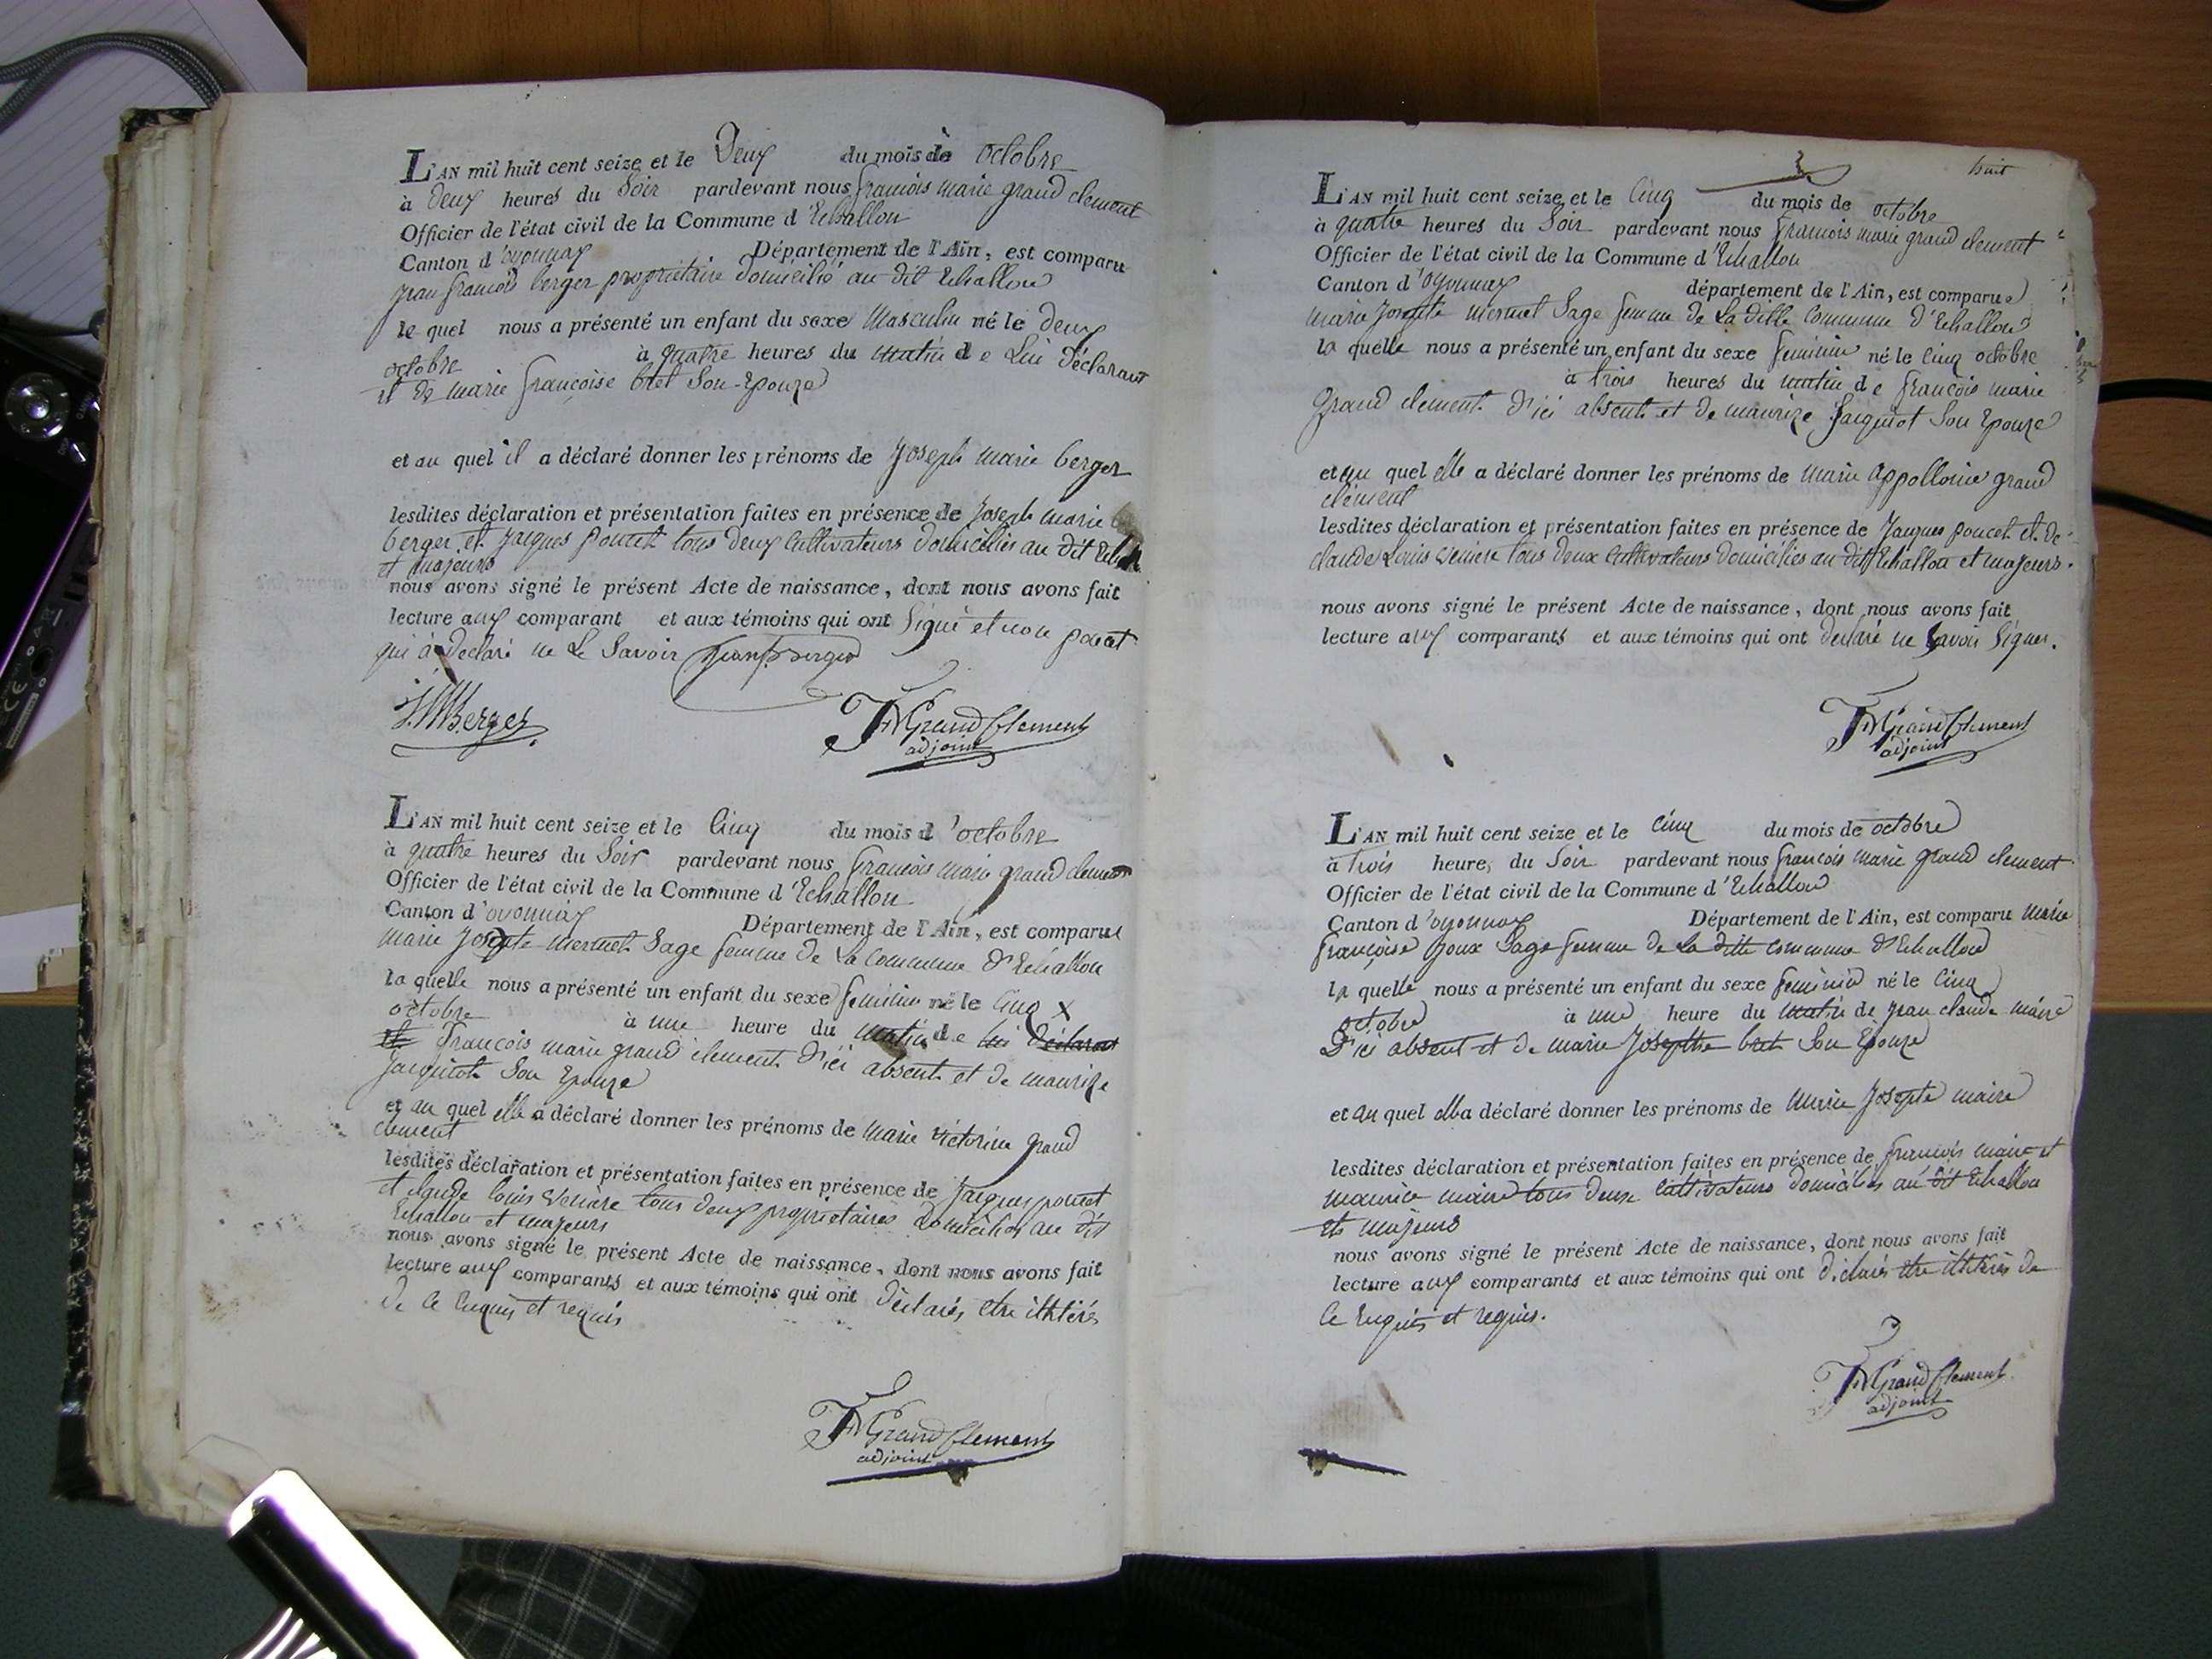 L'AN mil huit cent seize et le Deux du mois de octobre
à deux heures du Soir pardevant nous francois marie grand clement
Officier de l'état civil de la Commune d'Echallon
Canton d'oyonnax Département de l'Ain, est comparu
jean francois berger propriétaire domicilié au dit Echallon
le quel nous a présenté un enfant du sexe Masculin né le deux
octobre à quatre heures du matin de Lui déclarant
et de marie françoise bret Son Epouze
et au quel il a déclaré donner les prénoms de Joseph marie berger
lesdites déclaration et présentation faites en présence de Joseph marie
berger et jacques poncet tous deux Cultivateurs domiciliés au dit
et majeurs
nous avons signé le présent Acte de naissance, dont nous avons fait
lecture aux comparant et aux témoins qui ont Signé et non poncet
qui a Declaré ne Le Savoir
JMBerger
FMGrandClement
adjoint
L'AN mil huit cent seize et le Cinq du mois d'octobre
à quatre heures du Soir pardevant nous francois marie grand clement
Officier de l'état civil de la Commune d'Echallon
Canton d'oyonnax Département de l'Ain, est comparue
marie Josepte mermet Sage femme de La Commune d'Echallon
la quelle nous a présenté un enfant du sexe feminin né le cinq X
octobre à une heure du matin de lui déclarant
et francois marie grand clement d'ici absent et de maurize
Jacquiot Son Epouze
et au quel elle a déclaré donner les prénoms de marie victorine grand
clement
lesdites déclaration et présentation faites en présence de Jacques poncet
et claude louis verriere tous deux proprietaires domiciliés au dit
Echallon et majeurs
nous avons signé le présent Acte de naissance, dont nous avons fait
lecture aux comparants et aux témoins qui ont déclarés être illitérés
de ce Enquis et requis
FMGrandClement
adjoint
huit
L'AN mil huit cent seize et le Cinq du mois de octobre
à quatre heures du Soir pardevant nous francois marie grand clement
Officier de l'état civil de la Commune d'Echallon
Canton d'oyonnax département de l'Ain, est comparue
marie Josepte mermet Sage femme de La ditte Commune d'Echallon
la quelle nous a présenté un enfant du sexe feminin né le cinq octobre
à trois heures du matin de francois marie
grand clement d'ici absent et de maurize Jacquiot Son Epouze
et au quel elle a déclaré donner les prénoms de marie appollonie grand
clément
lesdites déclaration et présentation faites en présence de Jacques poncet et de
claude Louis verriere tous deux Cultivateurs domiciliés au dit Echallon et majeurs.
nous avons signé le présent Acte de naissance, dont nous avons fait
lecture aux comparants et aux témoins qui ont declaré ne Savoir Signer.
FMGrandClement
adjoint
L'AN mil huit cent seize et le cinq du mois de octobre
à trois heures du Soir pardevant nous francois marie grand clement
Officier de l'état civil de la Commune d'Echallon
Canton d'oyonnax Département de l'Ain, est comparu marie
françoise poux Sage femme de La ditte commune d'Echallon
la quelle nous a présenté un enfant du sexe feminin né le cinq
octobre à une heure du matin de jean claude maire
D'ici absent et de marie Josepthe bret Son Epouze
et au quel elle a déclaré donner les prénoms de Marie Josepte maire
lesdites déclaration et présentation faites en présence de francois maire et
maurice maire tous deux Cultivateurs domiciliés au dit Echallon
et majeurs
nous avons signé le présent Acte de naissance, dont nous avons fait
lecture aux comparants et aux témoins qui ont déclarés être illitérés de
ce Enquis et requis.
FMGrandClement
adjoint